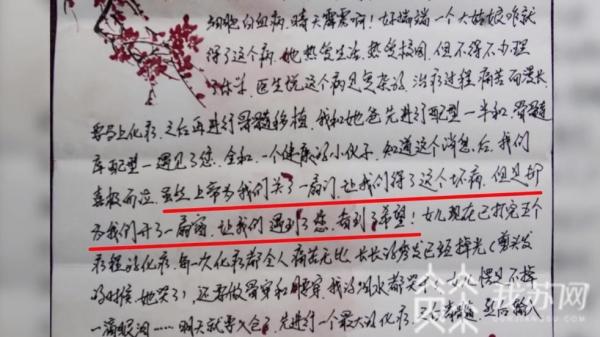 细胞白血病,晴天霹雳啊!好端端一个大姑娘咋就
得了这个病,她热爱生活,热爱校园,但不得不办理
了休学,医生说这个病见复杂的,治疗过程痛苦而漫长
要马上化疗,之后再进行骨髓移植,我和她爸先进行配型一半和,骨髓
库配型一遇见了您,全和,一个健康的小伙子,知道这个消息后,我们
喜极而泣,虽然上帝为我们关了一扇门,让我们得了这个坏病,但是却
为我们开了一扇窗,让我们遇到了您,看到了希望!女儿现在已打完五个
疗程的化疗,每一次化疗都令人痛苦无比,长长的秀发已经掉光(剪头发
的时候,她哭了),还要做骨穿和腰穿,我的泪水都哭干,女儿愣是不掉
一滴眼泪……明天就要入仓了,先进行一个最大的化疗,之后清髓,然后输入
我苏网